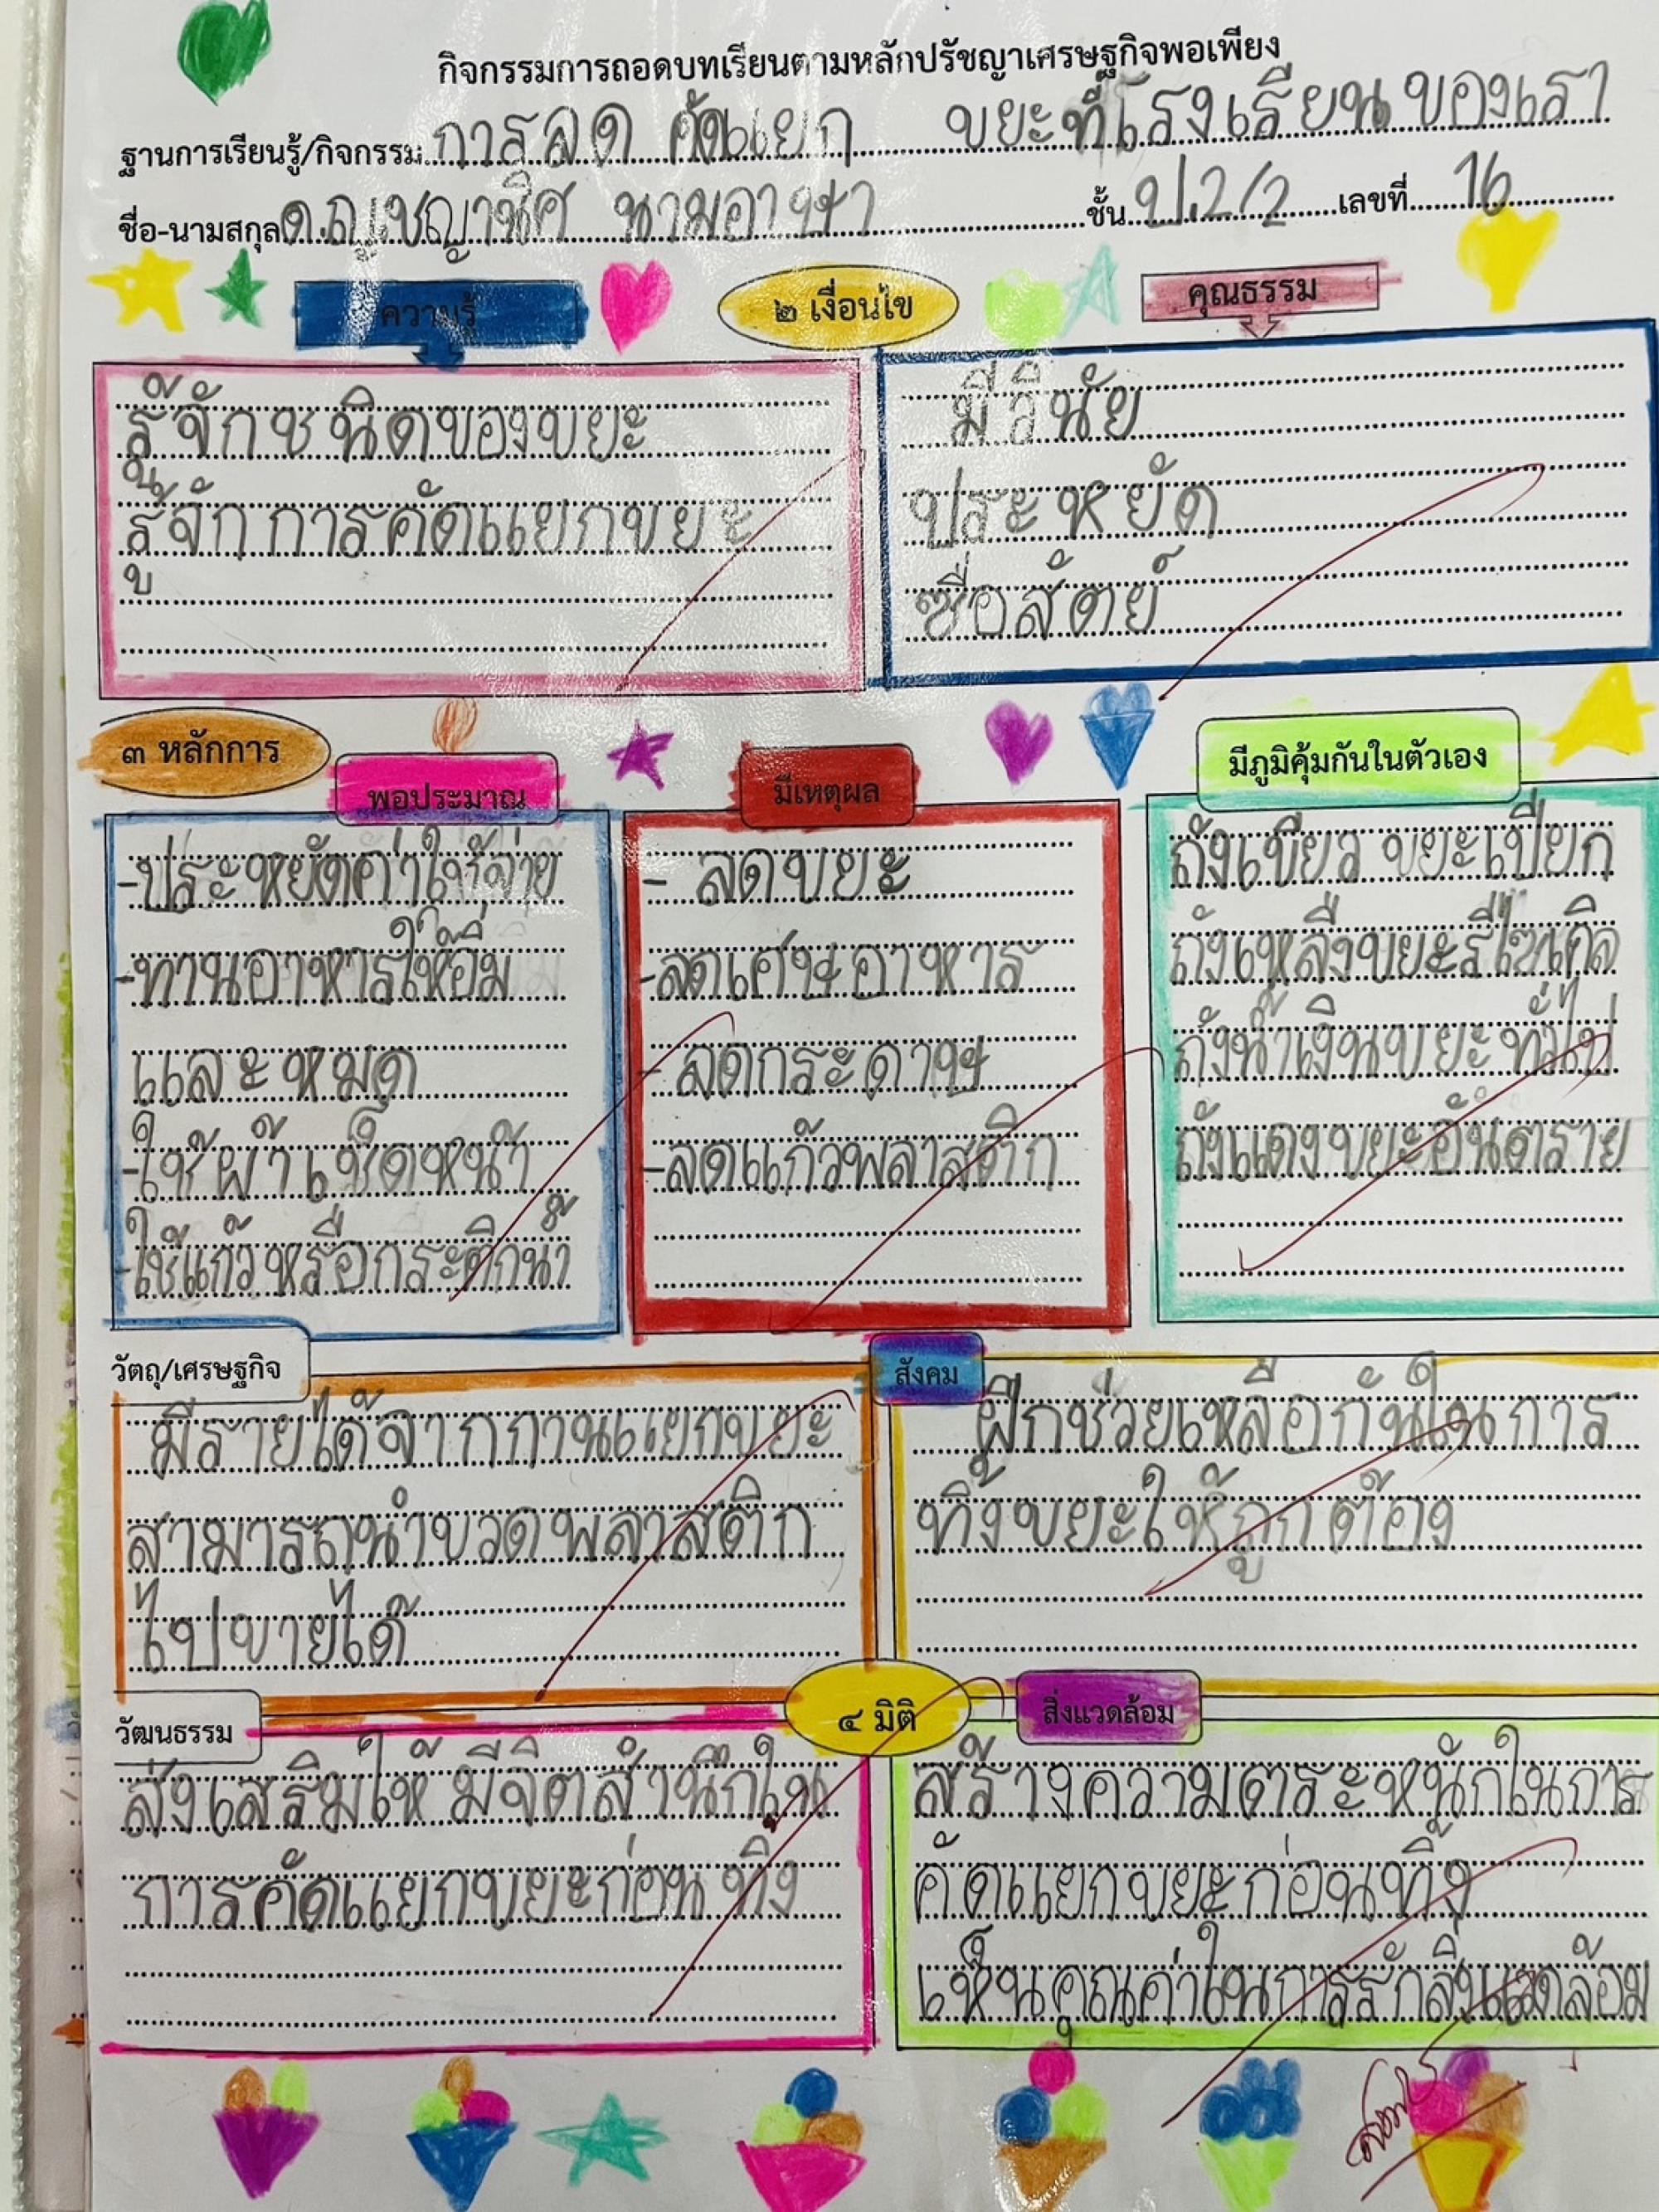 กิจกรรมการถอดบทเรียนตามหลักปรัชญาเศรษฐกิจพอเพียง
ฐานการเรียนรู้/กิจกรรม การลด คัดแยก ขยะที่โรงเรียนของเรา
ชื่อ-นามสกุล ด.ญ. ชญานิศ นามอาษา ชั้น ป.2/2 เลขที่ 16
ความรู้
๒ เงื่อนไข
คุณธรรม
รู้จักชนิดของขยะ
รู้จักการคัดแยกขยะ
มีวินัย
ประหยัด
ซื่อสัตย์
๓ หลักการ
พอประมาณ
มีเหตุผล
มีภูมิคุ้มกันในตัวเอง
-ประหยัดค่าใช้จ่าย
-ทานอาหารให้อิ่ม
และหมด
-ใช้ผ้าเช็ดหน้า
-ใช้แก้วหรือกระติกน้ำ
- ลดขยะ
-ลดเศษอาหาร
-ลดกระดาษ
-ลดแก้วพลาสติก
ถังเขียว ขยะเปียก
ถังเหลืงขยะรีไซเคิล
ถังน้ำเงินขยะทั่วไป
ถังแดงขยะอันตราย
วัตถุ/เศรษฐกิจ
มีรายได้จากการแยกขยะ
สามารถนำขวดพลาสติก
ไปขายได้
สังคม
ฝึกช่วยเหลือกันในการ
ทิ้งขยะให้ถูกต้อง
๔ มิติ
วัฒนธรรม
ส่งเสริมให้มีจิตสำนึกใน
การคัดแยกขยะก่อนทิ้ง
สิ่งแวดล้อม
สร้างความตระหนักในการ
คัดแยกขยะก่อนทิ้ง
เห็นคุณค่าในการรักสิ่งแวดล้อม